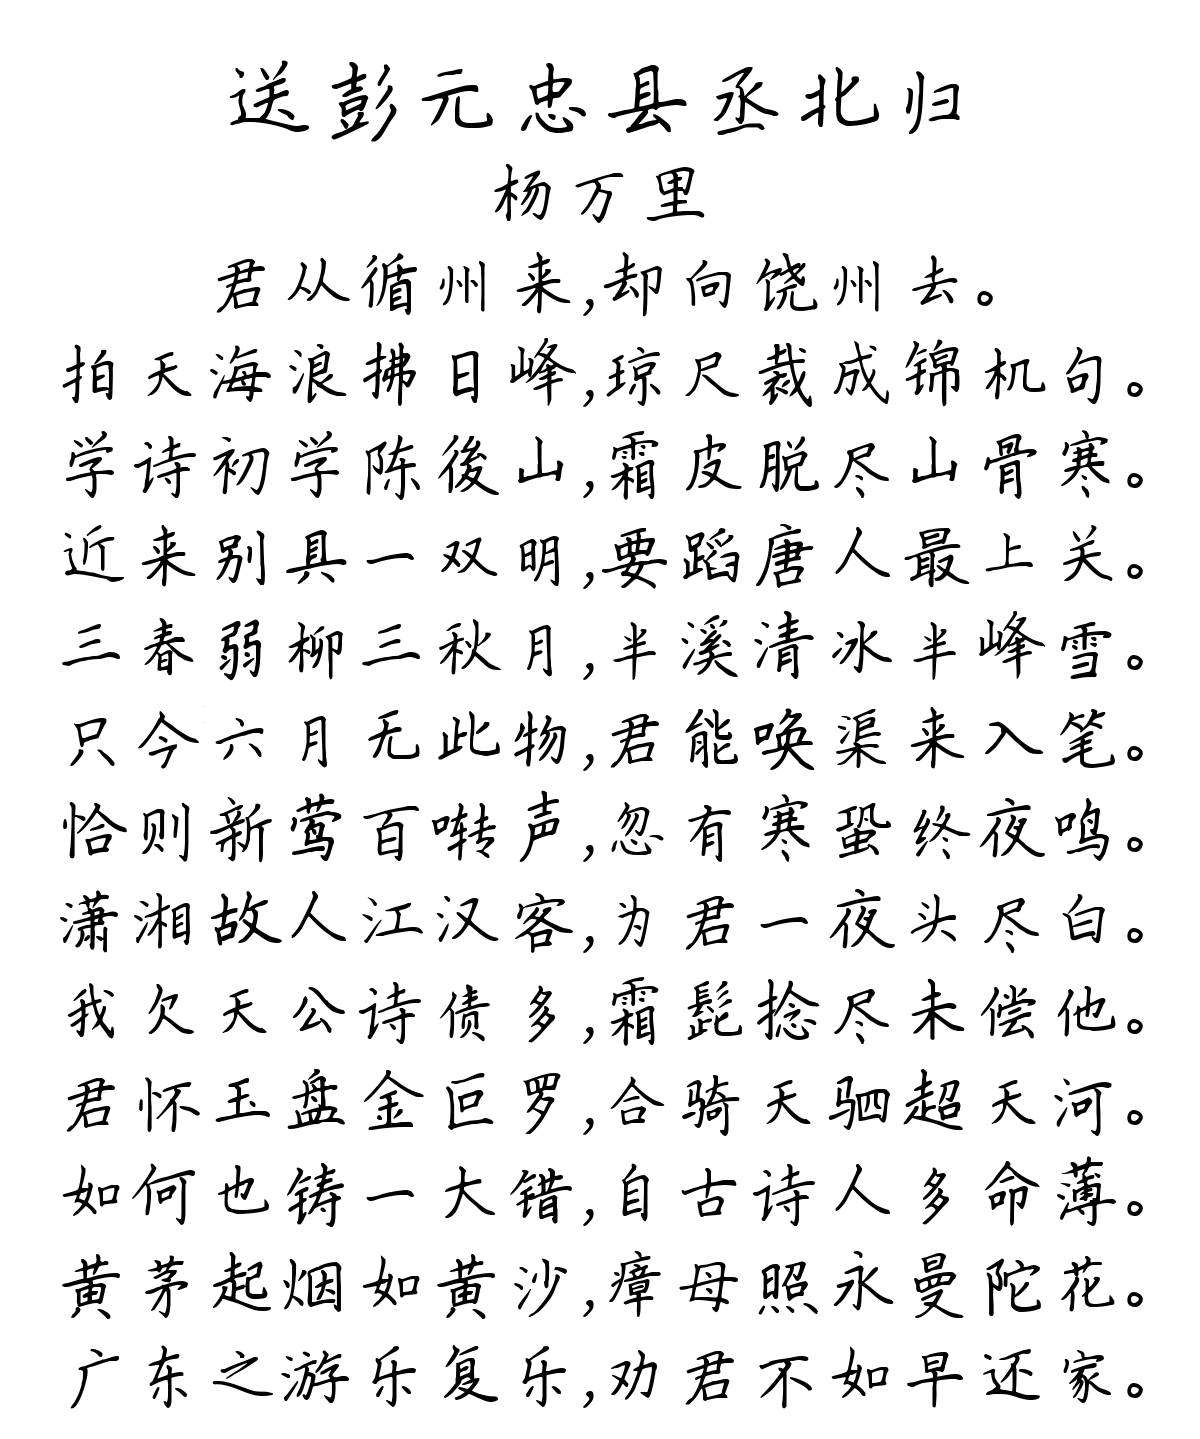 送彭元忠县丞北归
杨万里
君从循州来,却向饶州去。
拍天海浪拂日峰,琼尺裁成锦机句。
学诗初学陈後山,霜皮脱尽山骨寒。
近来别具一双明,要蹈唐人最上关。
三春弱柳三秋月,半溪清冰半峰雪。
只今六月无此物,君能唤渠来入笔。
恰则新莺百啭声,忽有寒蛩终夜鸣。
潇湘故人江汉客,为君一夜头尽白。
我欠天公诗债多,霜髭捻尽未偿他。
君怀玉盘金叵罗,合骑天驷超天河。
如何也铸一大错,自古诗人多命薄。
黄茅起烟如黄沙,瘴母照永曼陀花。
广东之游乐复乐,劝君不如早还家。